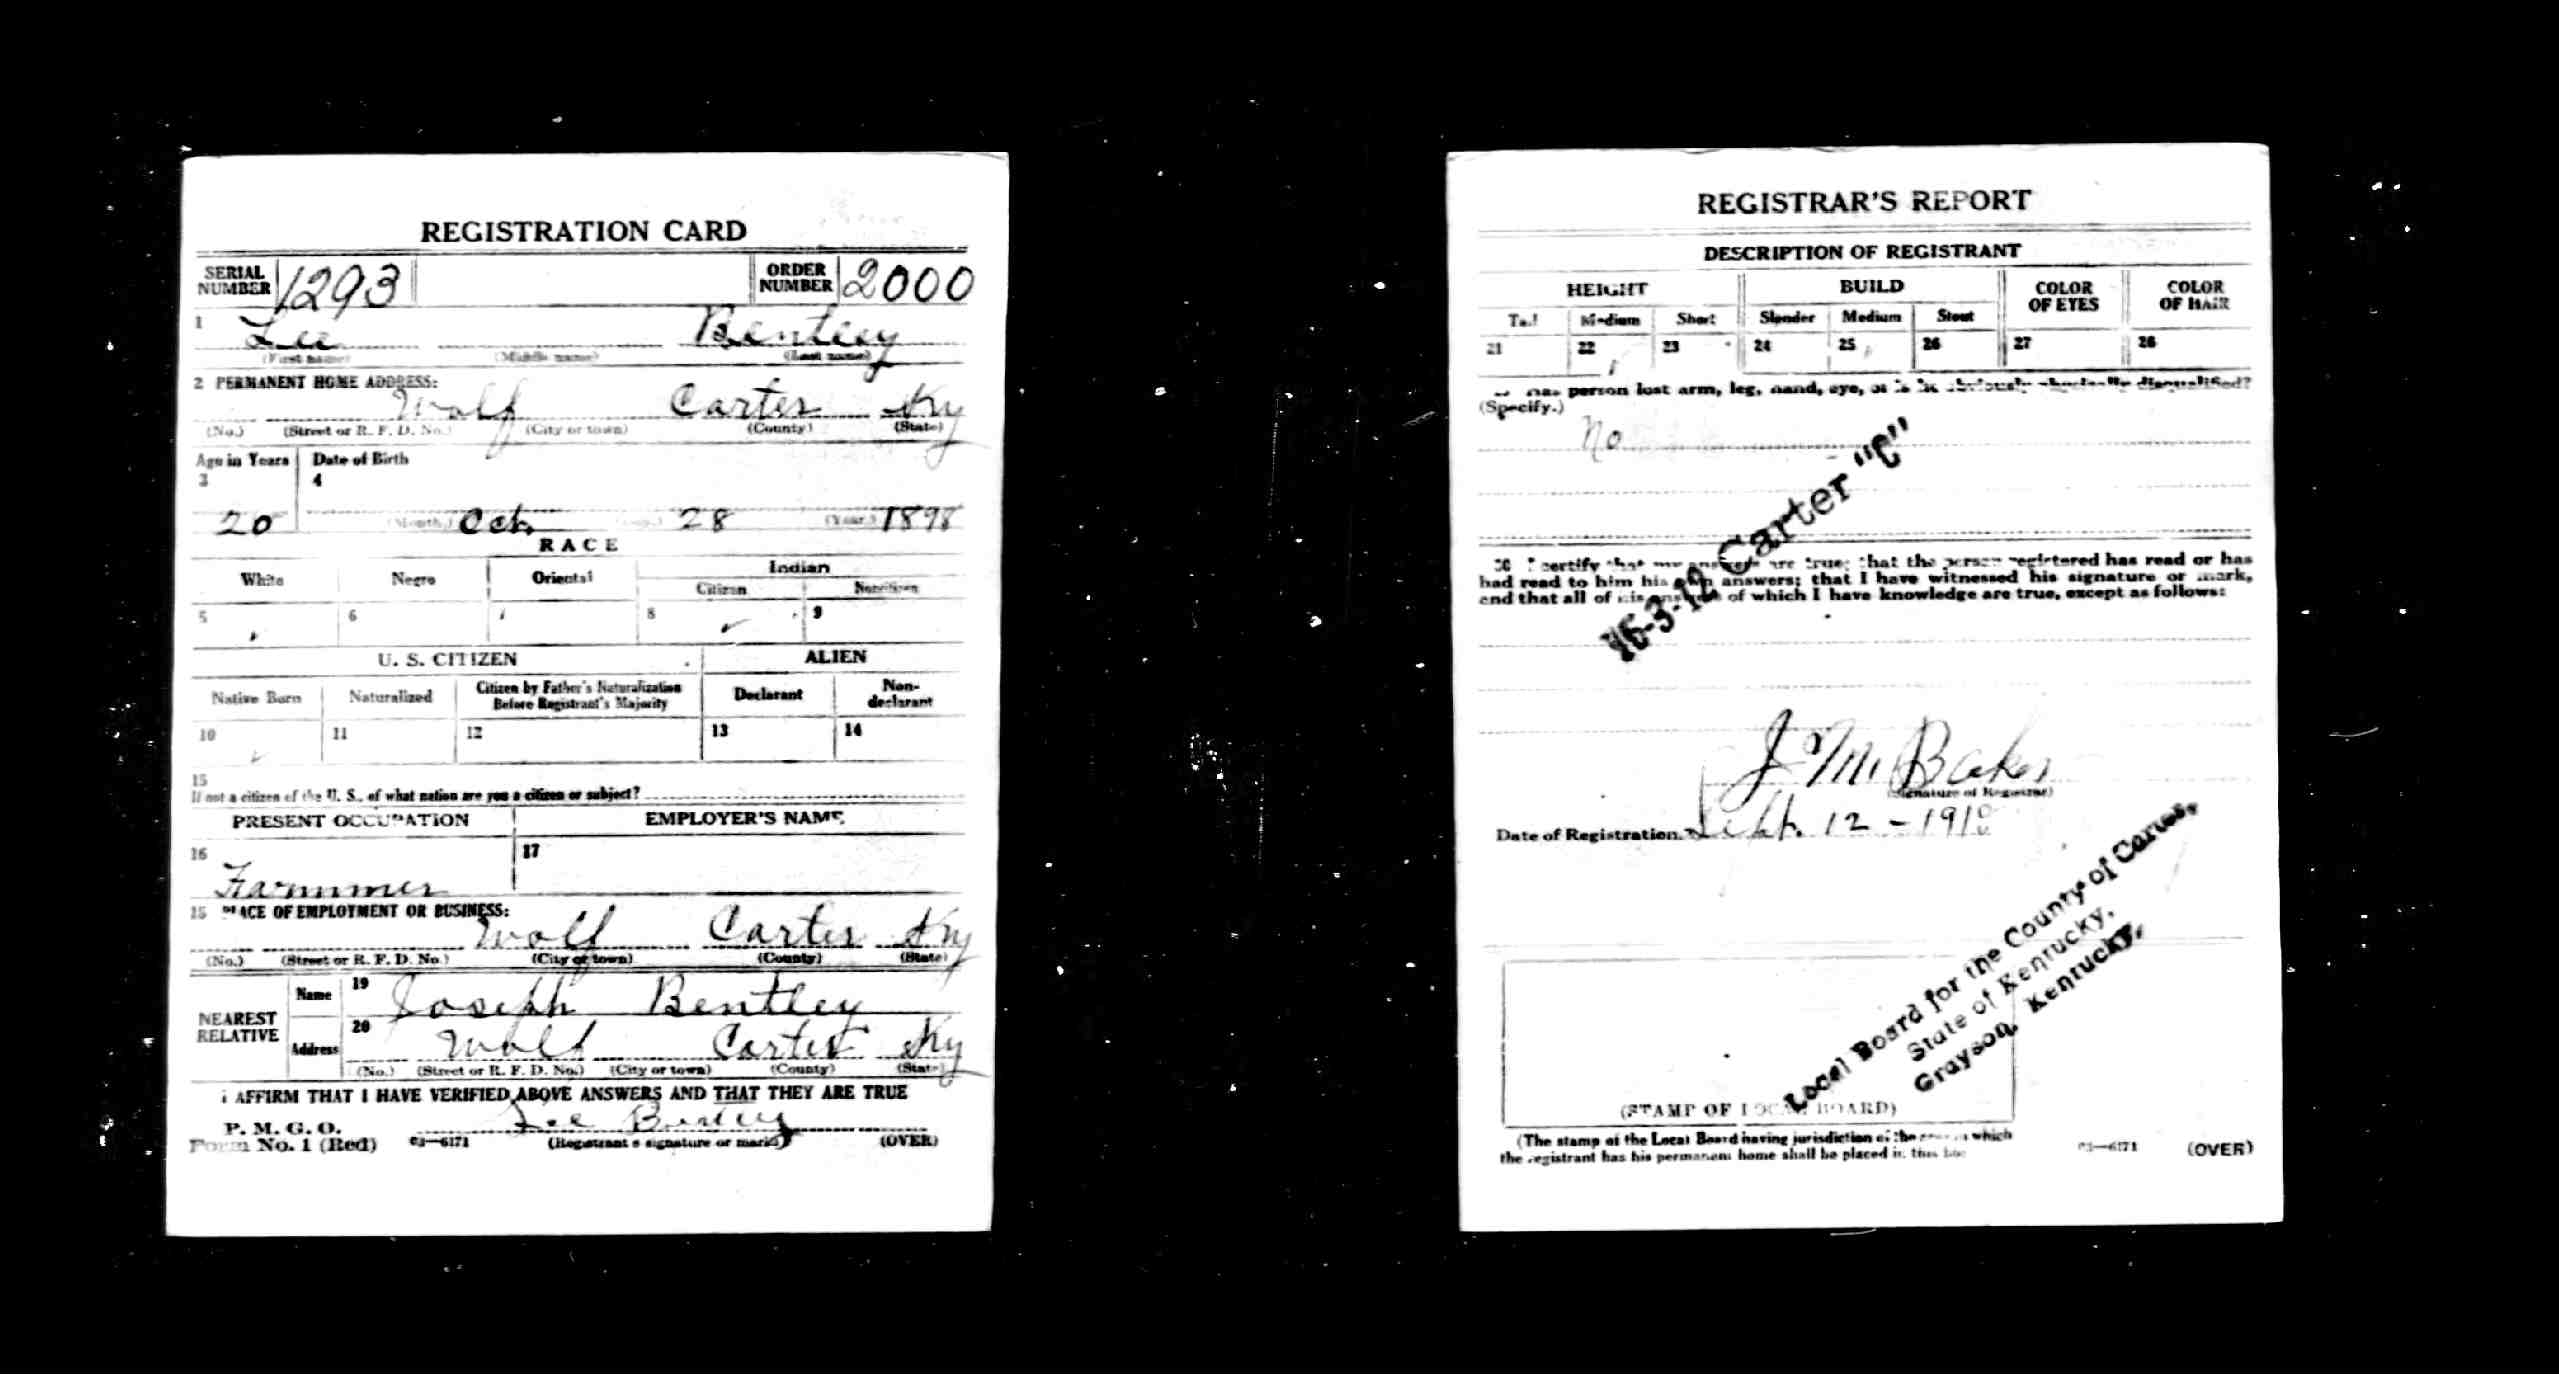 REGISTRATION CARD
SERIAL NUMBER 1293 ORDER NUMBER 2000
1 Lee Bentley
(First name) (Middle name) (Last name)
2 PERMANENT HOME ADDRESS:
Wolf Carter Ky
(No.) (Street or R. F. D. No.) (City or town) (County) (State)
Age in Years Date of Birth
3 4
20 (Month.) Oct. 28 (Year.) 1898
RACE
White Negro Oriental Indian
Citizen Noncitizen
5 6 7 8 9
U. S. CITIZEN ALIEN
Native Born Naturalized Citizen by Father's Naturalization Before Registrant's Majority Declarant Non-declarant
10 11 12 13 14
15
If not a citizen of the U. S., of what nation are you a citizen or subject?
PRESENT OCCUPATION EMPLOYER'S NAME
16 17
Farmmer
PLACE OF EMPLOYMENT OR BUSINESS:
Wolf Carter Ky
(No.) (Street or R. F. D. No.) (City or town) (County) (State)
NEAREST RELATIVE Name 19 Joseph Bentley
Address 20 Wolf Carter Ky
(No.) (Street or R. F. D. No.) (City or town) (County) (State)
I AFFIRM THAT I HAVE VERIFIED ABOVE ANSWERS AND THAT THEY ARE TRUE
P. M. G. O.
Form No. 1 (Red) 03—6171 (Registrant's signature or mark) (OVER)
Lee
REGISTRAR'S REPORT
DESCRIPTION OF REGISTRANT
HEIGHT BUILD COLOR OF EYES COLOR OF HAIR
Tall Medium Short Slender Medium Stout
21 22 23 24 25 26 27 28
Has person lost arm, leg, hand, eye, or is he obviously physically disqualified?
(Specify.)
No
16-3-12 Carter "C"
30 I certify that my answers are true; that the person registered has read or has
had read to him his own answers; that I have witnessed his signature or mark,
and that all of his answers of which I have knowledge are true, except as follows:
J M Baker
(Signature of Registrar)
Date of Registration Sept. 12 - 1918
Local Board for the County of Carter,
State of Kentucky,
Grayson, Kentucky.
(STAMP OF LOCAL BOARD)
(The stamp of the Local Board having jurisdiction of the area in which
the registrant has his permanent home shall be placed in this box
03—6171 (OVER)